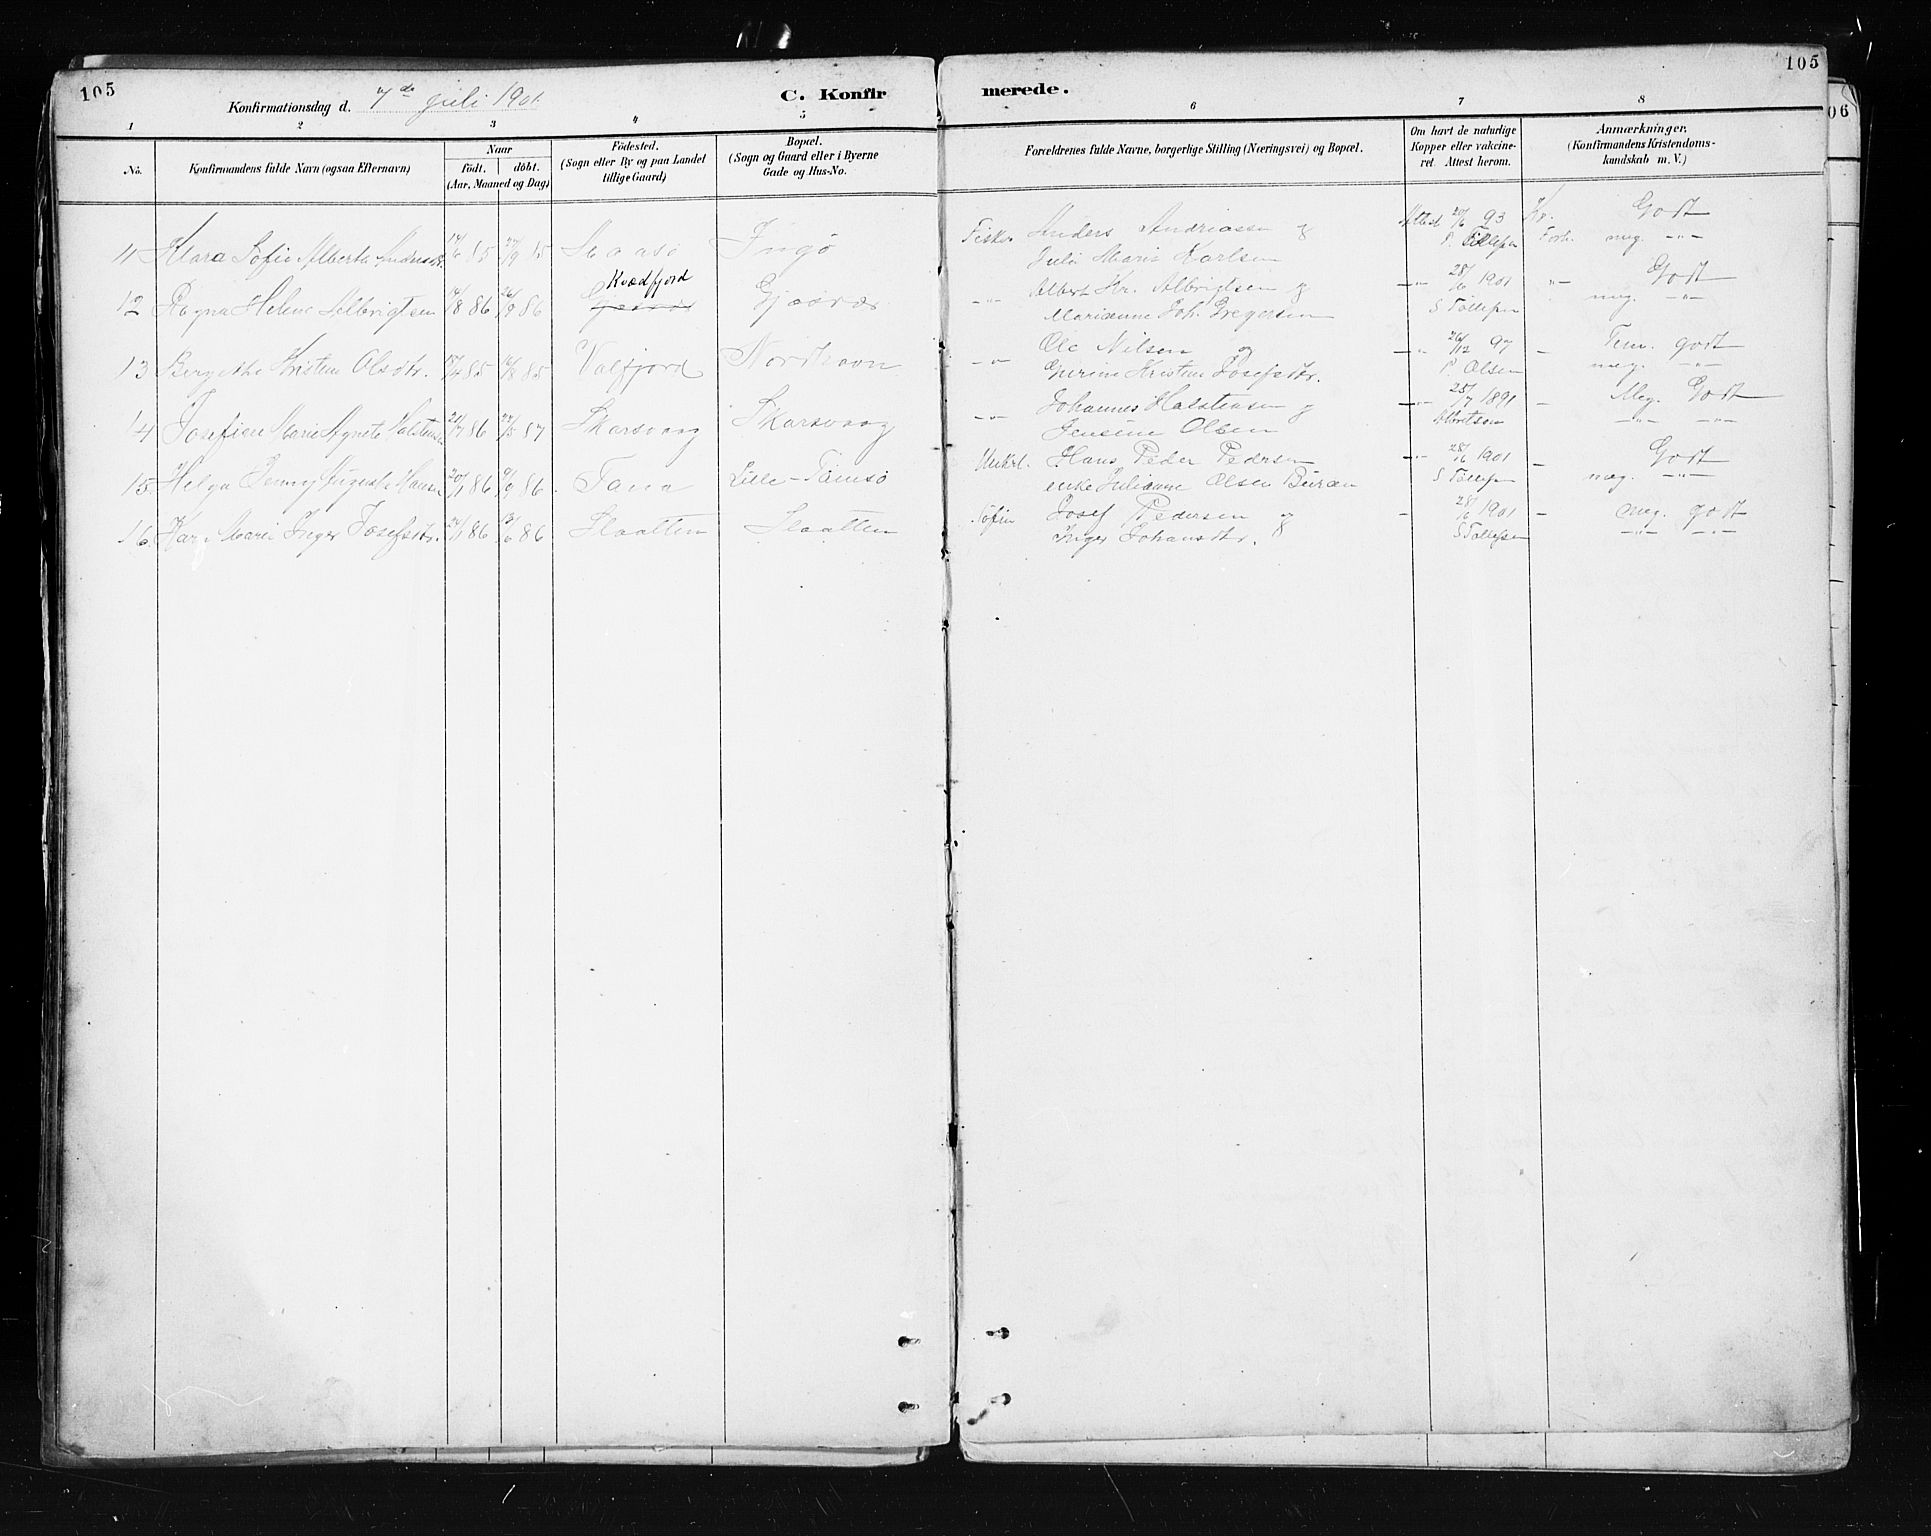 105
Konfirmationsdag d. 7de juli 1901.
C. Konfir
merede.
105
06
1 2 3 4 5 6 7 8
No.
Konfirmandens fulde Navn (ogsaa Efternavn)
Naar
födt. döbt.
(Aar, Maaned og Dag)
Födested.
(Sogn eller By og paa Landet
tillige Gaard)
Bopæl.
(Sogn og Gaard eller i Byerne
Gade og Hus-No.
Forældrenes fulde Navne, borgerlige Stilling (Næringsvei) og Bopæl.
Om havt de naturlige
Kopper eller vakcine-
ret. Attest herom.
Anmærkninger.
(Konfirmandens Kristendoms-
kundskab m. V.)
11 Klara Sofie Alberta Andersdtr. 14/6 85 27/9 85 Maasø Ingø Fisker Anders Andriassen og Attest 20/6 93 Kr. Godt
Julé Marie Karlsen P. Tillefsen Forh. meg. -"-
Kvædfjord
12 Ragna Helene Albrigtsen 14/8 86 26/9 86 Gjesvær Gjæsvær -"- Albert Kr. Albrigtsen og -"- 28/6 1901 -"- Godt
Marianne Joh. Gregersen S Tollefsen meg. -"-
13 Bergithe Kristine Olsdtr. 18/4 85 16/8 85 Valfjord Nordhavn -"- Ole Nilsen og -"- 26/12 97 - Tem. godt
Gurine Kristine Josefsdtr. P Olsen meg. -"-
14 Josefine Marie Agnete Halstensen 21/7 86 27/5 87 Skarsvaag Skarsvaag -"- Johannes Halstensen og -"- 25/7 1891 - Meg. Godt
Jensine Olsen Albertsen -"- -"-
15. Helga Jenny Auguste Hansen 20/1 86 9/9 86 Tana Lille-Tamsø Unkrl. Hans Peder Pedersen -"- 28/6 1901 - Godt
enke Julianne Olsen S Tollefsen meg. -"-
16. Kari Marie Inger Josefsdtr. 24/1 86 13/6 86 Slaatten Slaatten Søfin Josef Pedersen og - 28/6 1901 - meg. godt
Inger Johansdtr. S Tollefsen -"- -"-